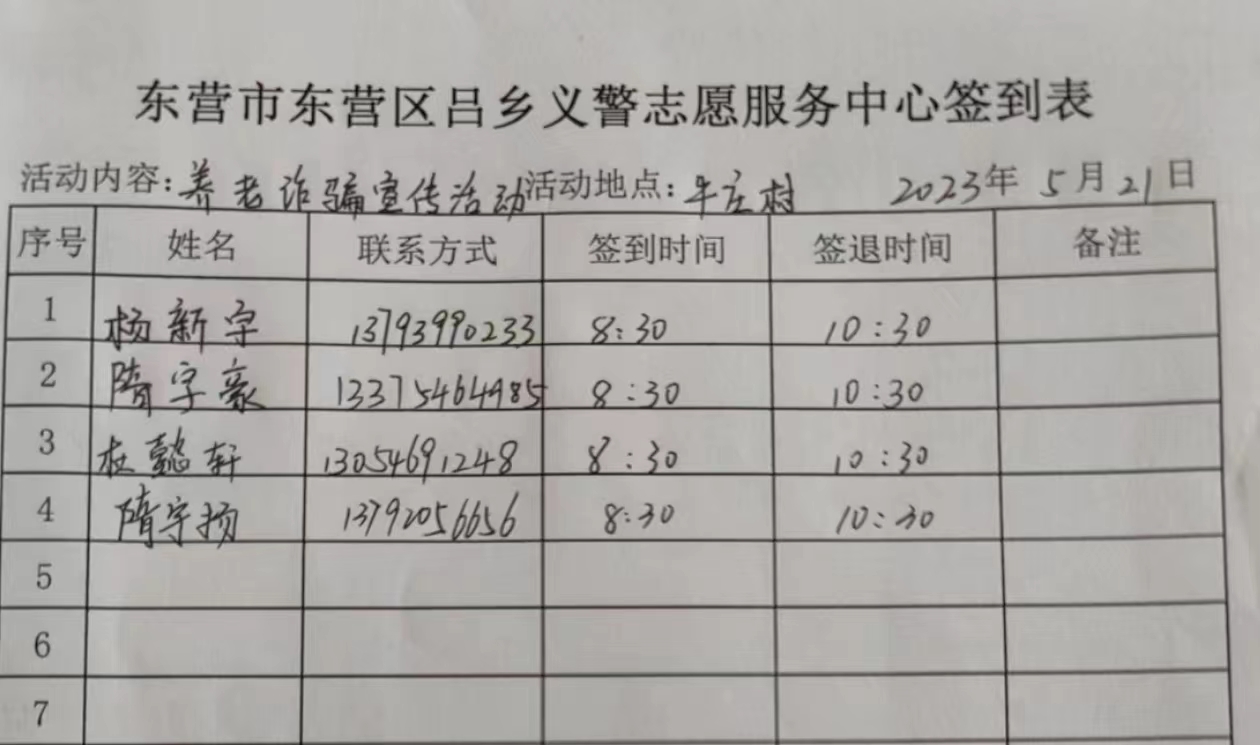 东营市东营区吕乡义警志愿服务中心签到表
活动内容:养老诈骗宣传活动活动地点:牛庄村 2023年5月21日
序号 姓名 联系方式 签到时间 签退时间 备注
1 杨新宇 13793990233 8:30 10:30
2 隋宇豪 13375464985 8:30 10:30
3 杜懿轩 13054691248 8:30 10:30
4 隋宇扬 13792056656 8:30 10:30
5
6
7